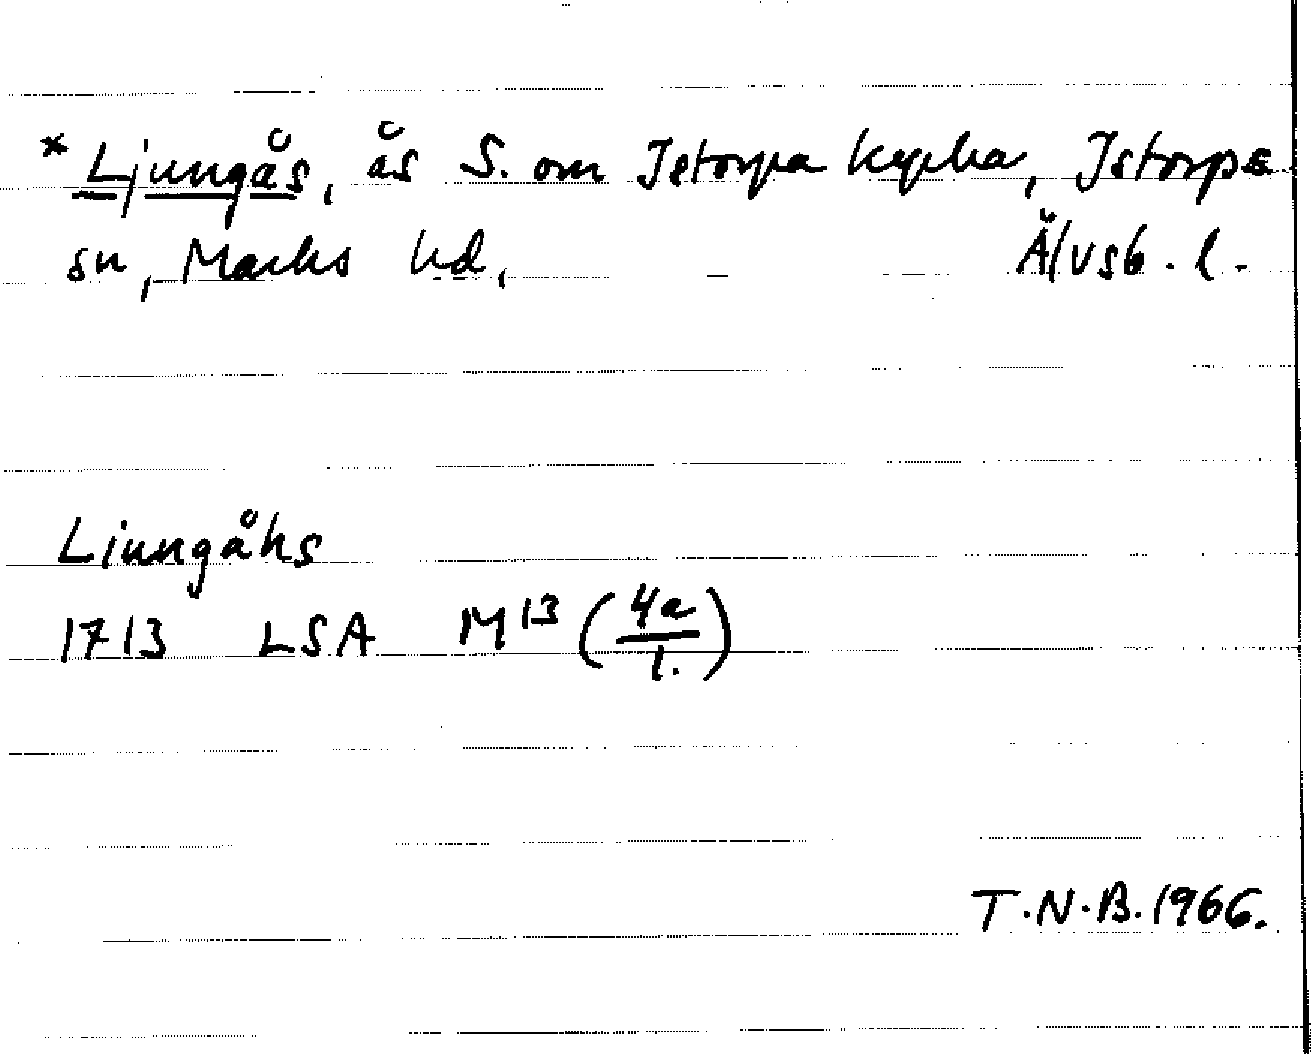 * Ljungås, ås S. om Istorps kyrka, Istorps
sn, Marks hd, Älvsb. l.
Liungåhs
1713 LSA M13 (4a/1.)
T.N.B. 1966.